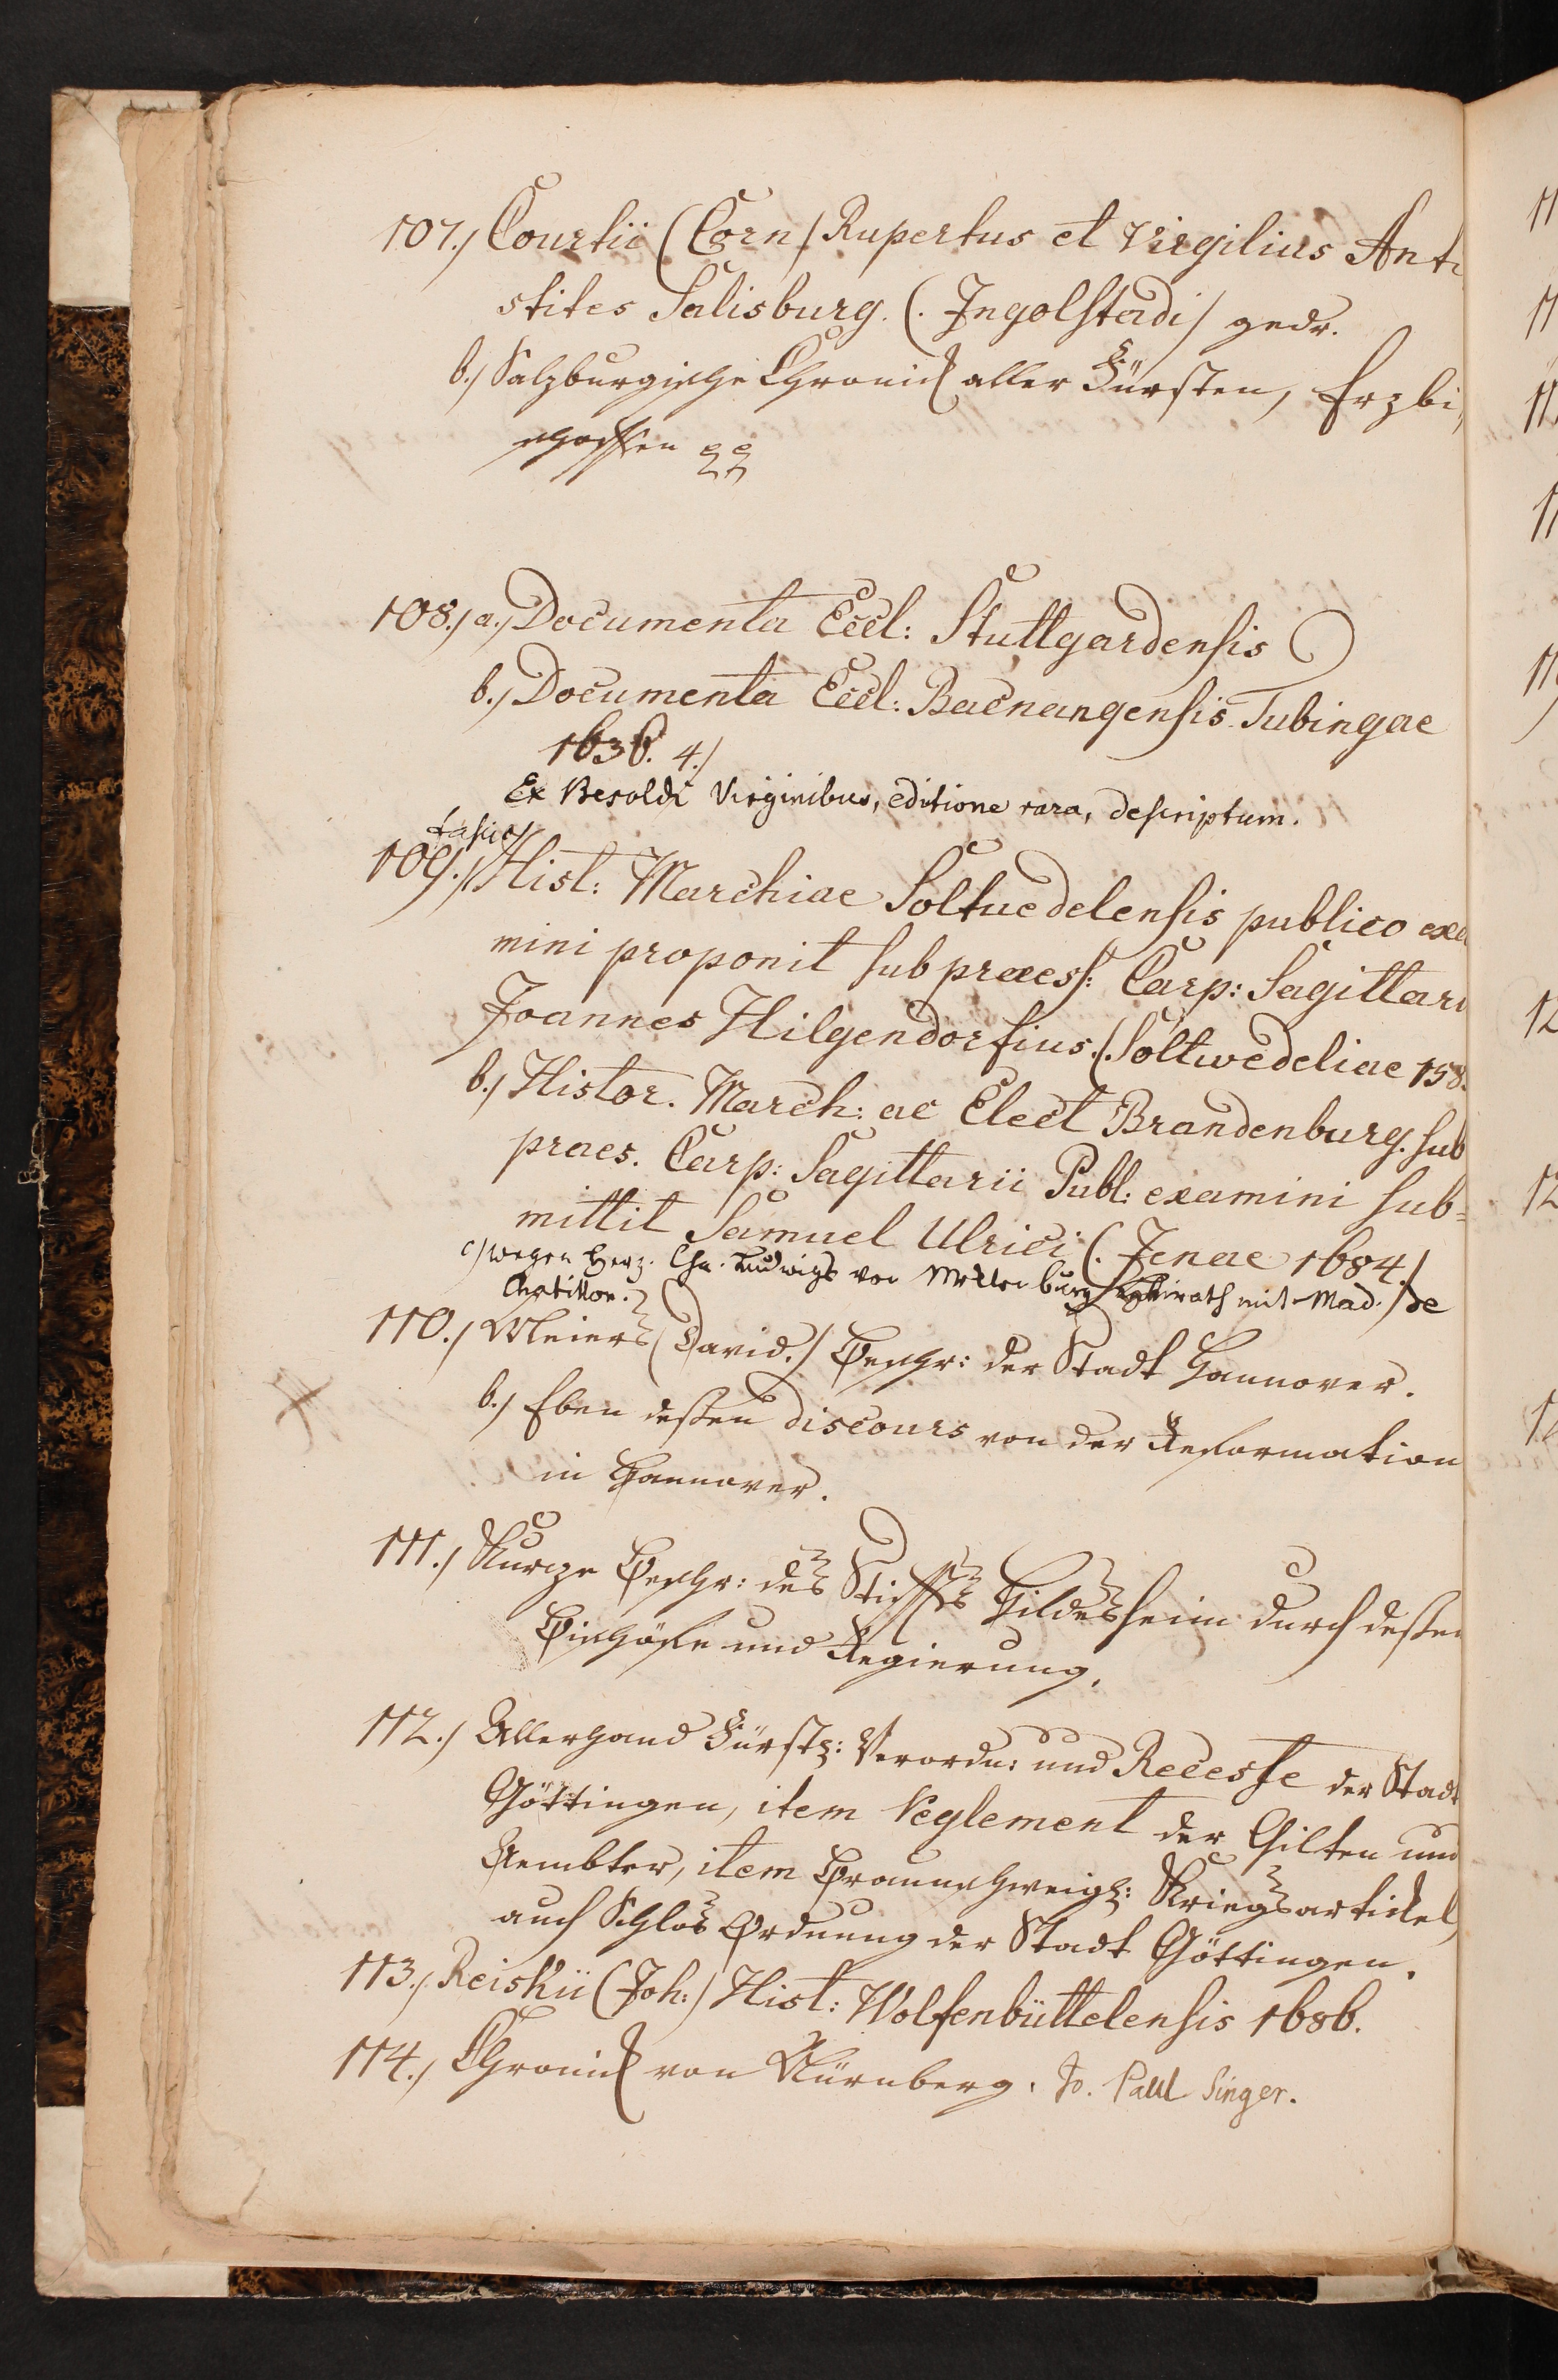 107.) Courtii (Corn) Rupertus et Virgilius Anti
stites Salisburg. (. Ingolstadi) gedr.
b.) Saltzburgische Chronick aller Fürsten, Erzbi,
schoffen
108.) a.) Documenta Eccl: Stuttgardensis
b.) Documenta Eccl: Bacnangensis Tubingae
1636. 4.)
Ex Besoldi Virginibus, editione rara, descriptum.
109.) Hist: Marchiae Soltuedelensis publico exa
mini proponit sub praess: Casp: Sagittari
Joannes Hilgendorfius. (. Soltwedeliae 158
b.) Histor. March: ac Elect Brandenburg. sub
praes. Casp: Sagittarii Publ: examini sub=
mittit Samuel Ulrici (. Jenae 1684.)
c) wegen Herz. Chr. Ludwigs von Mecklenburg Heirath mit Mad. de
Chatillon.
110.) Meiers (David.) Beschr: der Stadt Hannover.
b.) Eben deßen discours von der Reformation
in Hannover.
111.) Kurze Beschr: des Stiffts Hildesheim durch deßen
Bischöfe und Regierung.
112.) Allerhand Fürstl: Verordn: und Recesse der Stadt
Göttingen, item Reglement der Gilten und
Aembter, item Braunschweigl: Kriegsartickel,
auch Schlos Ordnung der Stadt Göttingen.
113.) Reiskii (Joh:) Hist: Wolfenbüttelensis 1686.
114.) Chronick von Nürnberg. Jo. Paul Singer.